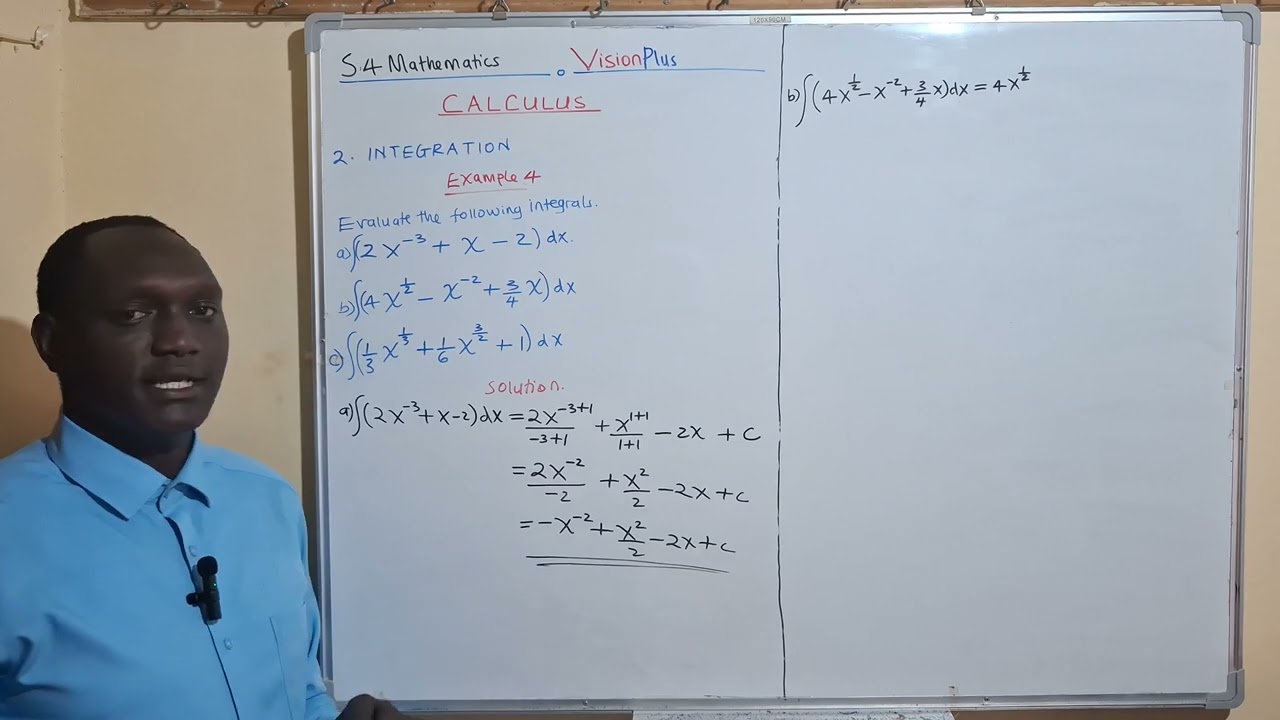 120X90CM
S.4 Mathematics VisionPlus
CALCULUS
2. INTEGRATION
Example 4
Evaluate the following integrals.
a) ∫(2x⁻³ + x − 2) dx.
b) ∫(4x^½ − x⁻² + ¾ x) dx
c) ∫(⅓ x^⅓ + ⅙ x^(3/2) + 1) dx
Solution.
a) ∫(2x⁻³ + x − 2) dx = 2x^(−3+1)/(−3+1) + x^(1+1)/(1+1) − 2x + c
= 2x⁻²/−2 + x²/2 − 2x + c
= −x⁻² + x²/2 − 2x + c
b) ∫(4x^½ − x⁻² + ¾ x) dx = 4x^½